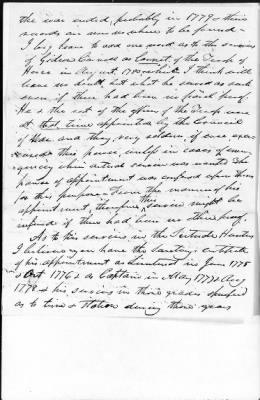 the war ended, probably in 1779 & their
records are no where to be found –
I beg leave to add one word as to the services
of Gideon as Cornet of the Troop of
Horse in August 1780 which I think will
leave no doubt but what he served as such
even if there had been no parol proof.
He & the rest of the officers of the Troop were
at that time appointed by the Council
of and they were soldiers of some
this power, unless in cases of emer-
gency when actual service was wanted. The
power of appointment was conferred upon them
for this purpose. From the manner of his
appointment, therefore, this service might be
inferred if there had been no other proof.
As to his services in the Hunters
I discover you have the Secretary certificate
of his appointment as Lieutenant in June 1775
& Oct 1776 & as Captain in May 1777 & Aug
1778 & his services in those grades specified
as to time & station during those years